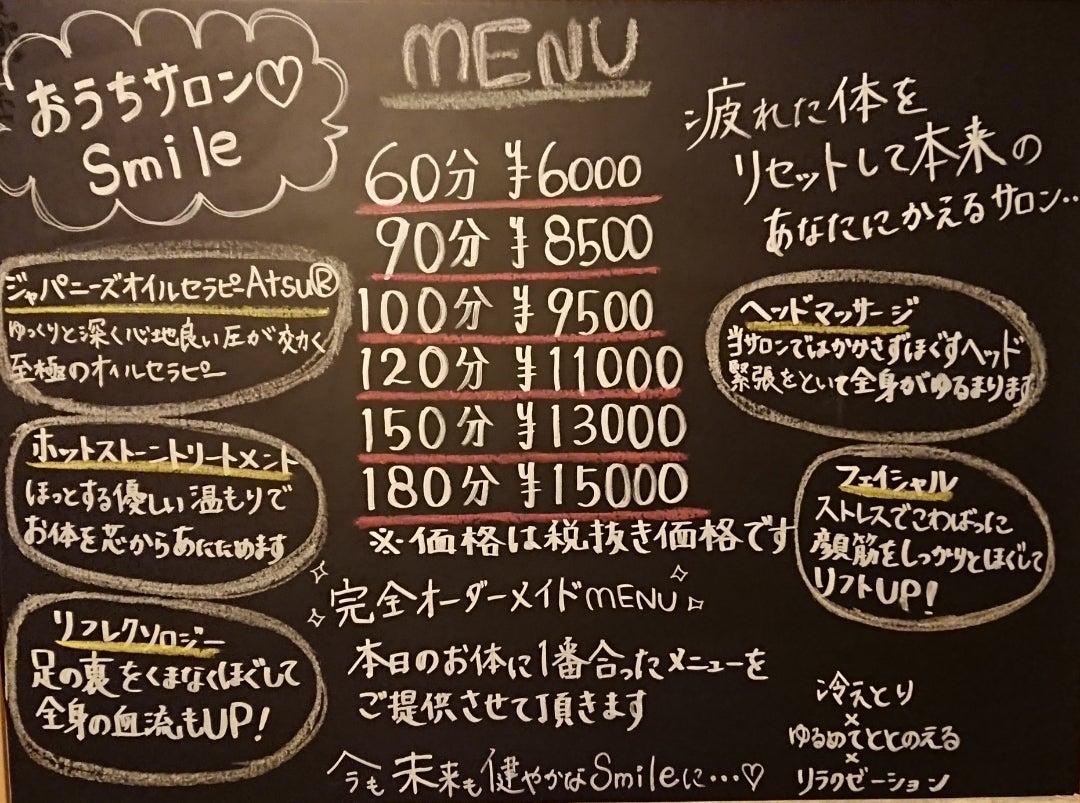 おうちサロン♡
Smile
MENU
60分 ¥6000
90分 ¥8500
100分 ¥9500
120分 ¥11000
150分 ¥13000
180分 ¥15000
※価格は税抜き価格です
疲れた体を
リセットして本来の
あなたにかえるサロン‥
ジャパニーズオイルセラピーAtsu®
ゆっくりと深く心地良い圧が効く
至極のオイルセラピー
ホットストーントリートメント
ほっとする優しい温もりで
お体を芯からあたためます
リフレクソロジー
足の裏をくまなくほぐして
全身の血流もUP!
ヘッドマッサージ
当サロンではかかさずほぐすヘッド
緊張をといて全身がゆるまります
フェイシャル
ストレスでこわばった
顔筋をしっかりとほぐして
リフトUP!
完全オーダーメイドMENU
本日のお体に1番合ったメニューを
ご提供させて頂きます
今も未来も健やかなSmileに…♡
冷えとり
×
ゆるめてととのえる
×
リラクゼーション